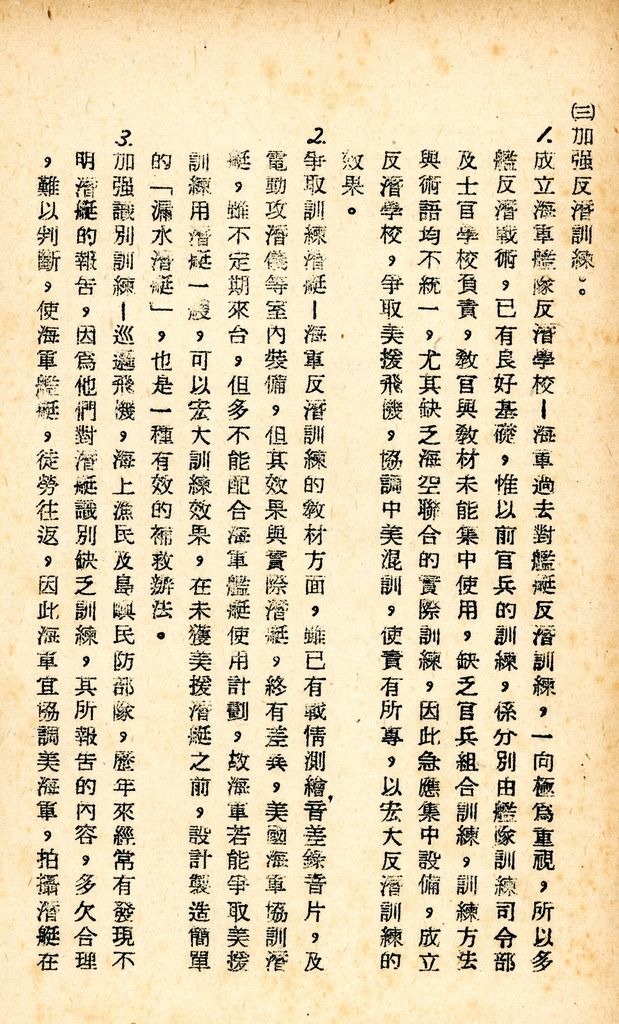 ㈢加强反潛訓練。。
1.成立海軍艦隊反潛學校—海軍過去對艦艇反潛訓練,一向極為重視,所以多
艦反潛戰術,已有良好基礎,惟以前官兵的訓練,係分別由艦隊訓練司令部
及士官學校負責,教官與教材未能集中使用,缺乏官兵組合訓練,訓練方法
與術語均不統一,尤其缺乏海空聯合的實際訓練,因此急應集中設備,成立
反潛學校,爭取美援飛機,協調中美混訓,使責有所專,以宏大反潛訓練的
效果。
2.爭取訓練潛艇—海軍反潛訓練的教材方面,雖已有戰情測繪,音差錄音片,及
電動攻潛儀等室內裝備,但其效果與實際潛艇,終有差異,美國海軍協訓潛
艇,雖不定期來台,但多不能配合海軍艦艇使用計劃,故海軍若能爭取美援
訓練用潛艇一艘,可以宏大訓練效果,在未獲美援潛艇之前,設計製造簡單
的「漏水潛艇」,也是一種有效的補救辦法。
3.加强識別訓練—巡邏飛機,海上漁民及島嶼民防部隊,歷年來經常有發現不
明潛艇的報告,因為他們對潛艇識別缺乏訓練,其所報告的內容,多欠合理
,難以判斷,使海軍艦艇,徒勞往返,因此海軍宜協調美海軍,拍攝潛艇在